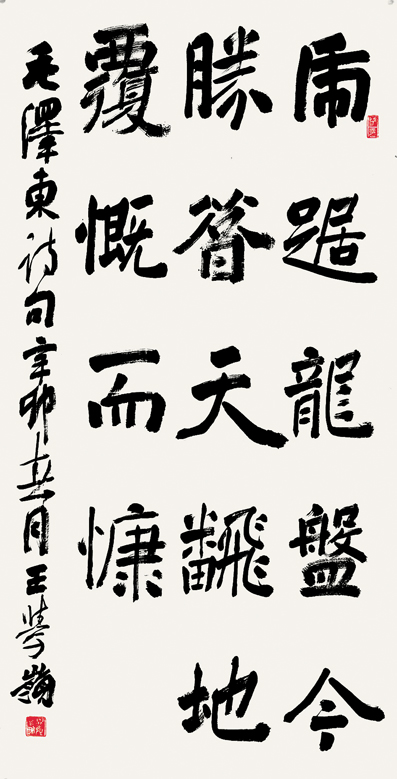 虎踞龍盤今
勝昔天飜地
覆慨而慷
毛澤東詩句辛卯月王嶺